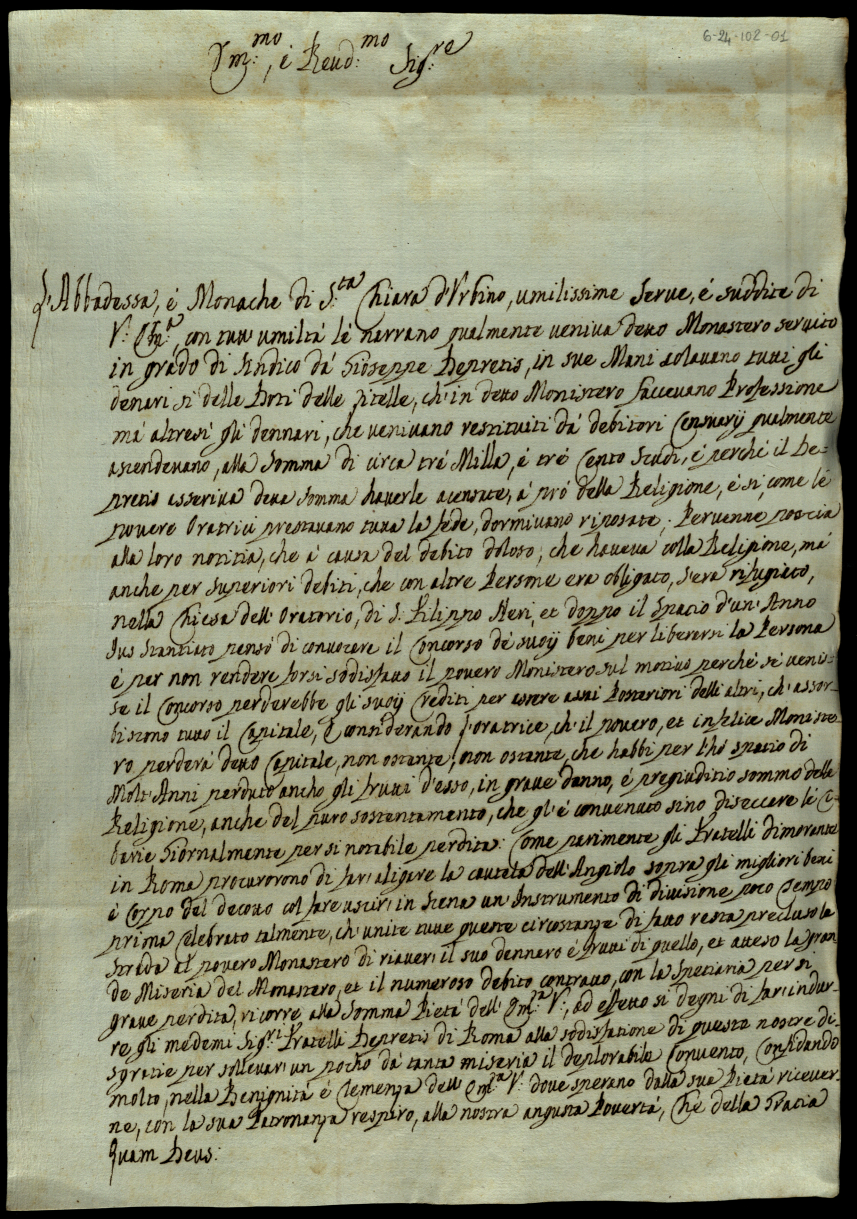 6-24-102-01
Em:mo, é Reud:mo Sig:re
L'Abbadessa, é Monache di S:ta Chiara d'Vrbino, umilissime Serue, é suddite di
V: Em:a, con tutta umiltá lé narrano qualmente veniua detto Monastero seruito
in grado di Sindico dá Gioseppe Depretis, in sue Mani colauano tutti gli
denari si delle Doti delle zitelle, ch'in detto Monistero faccevano Professione
má altresi gli dennari, che veniuano restituiti dá debitori Censuarij qualmente
ascendeuano, alla Somma di circa tré Milla, é tré Cento Scudi, é perché il De-
pretis asseriua detta Somma hauerle acensate, á pró della Religione, é si come lé
pouere Oratrici prestauano tutta la fede, dormiuano riposate; Peruenne poscia
alla loro notitia, che á causa del debito doloso, che haueua colla Religione, má
anche per Superiori debiti, che con altre Persone era obligato, s'era rifugiato,
nella Chiesa dell'Oratorio, di S: Filippo Neri, et doppo il Spacio d'un'Anno
Sus stantiato pensó di conuocare il Concorso dé suoij beni per liberarsi la Persona
é per non rendere forsi sodisfatto il pouero Monistero sul motiuo perché si venis-
se il Concorso perderebbe gli suoij Crediti per essere assai Posteriori delli altri, ch'assor-
biscono tutto il Capitale, é considerando l'oratrice, ch'il pouero, et infelice Moniste-
ro perderá detto Capitale, non ostante, non ostante, che habbi per lo spatio di
Molt'Anni perduto ancho gli frutti d'esso, in graue danno, é pregiuditio sommo della
Religione, anche del puro sostentamento, che gl'é conuenuto sino diseccare lé Ci-
barie Giornalmente per si notabile perdita: Come parimente gli Fratelli dimorante
in Roma procurorono di far'aligare la cautela dell'Angiolo sopra gli migliori beni
é Corpo del decotto col fare uscir' in Scena un'Instrumento di diuisione poco Tempo
prima Celebrato talmente, ch'unite tutte queste circostanze di fatto resta precluso la
Strada al pouero Monastero di riauer' il suo dennaro é frutti di quello, et atteso la gran
de Miseria del Monastero, et il numeroso debito contratto, con la Spetiaria per si
graue perdita, ricorre, alla Somma Pietá dell'Em:a V:, ad effetto si degni di far'indur-
re gli medemi Sig:ri Fratelli Depretis di Roma alla sodisfatione di queste nostre di-
sgratie per solleuar'un pocho dá tanta miseria il deplorabile Conuento, Confidando
molto, nella Benignitá é Clemenza dell'Em:a V: doue sperano dalla sua Pietá riceuer-
ne, con la sua Patronanza respiro, alla nostra angusta Pouertá, Che della Gratia
Quam Deus: